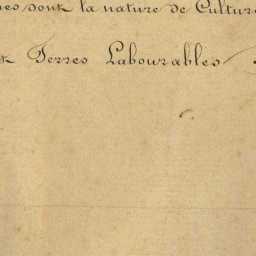 dont la nature de Cultur
Terres Labourables